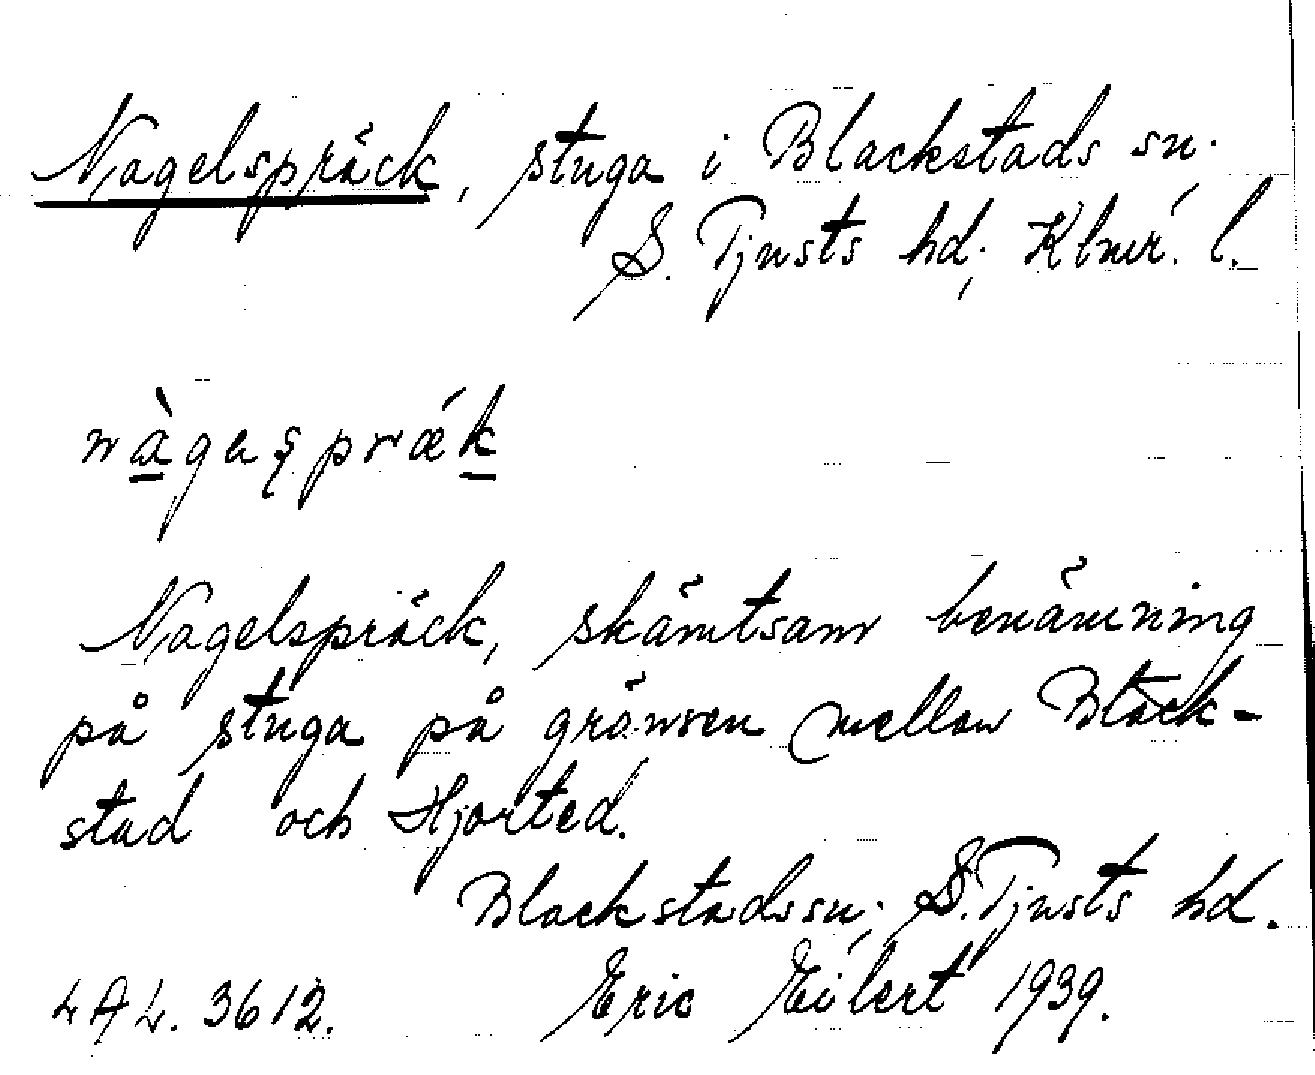 Nagelspräck, stuga i Blackstads sn.
S. Tjusts hd., Klmr. l.
nàgeʂprǽk
Nagelspräck, skämtsam benämning
på stuga på gränsen mellan Black-
stad och Hjorted.
Blackstads sn., S. Tjusts hd.
LAL. 3612. Eric Eilert 1939.